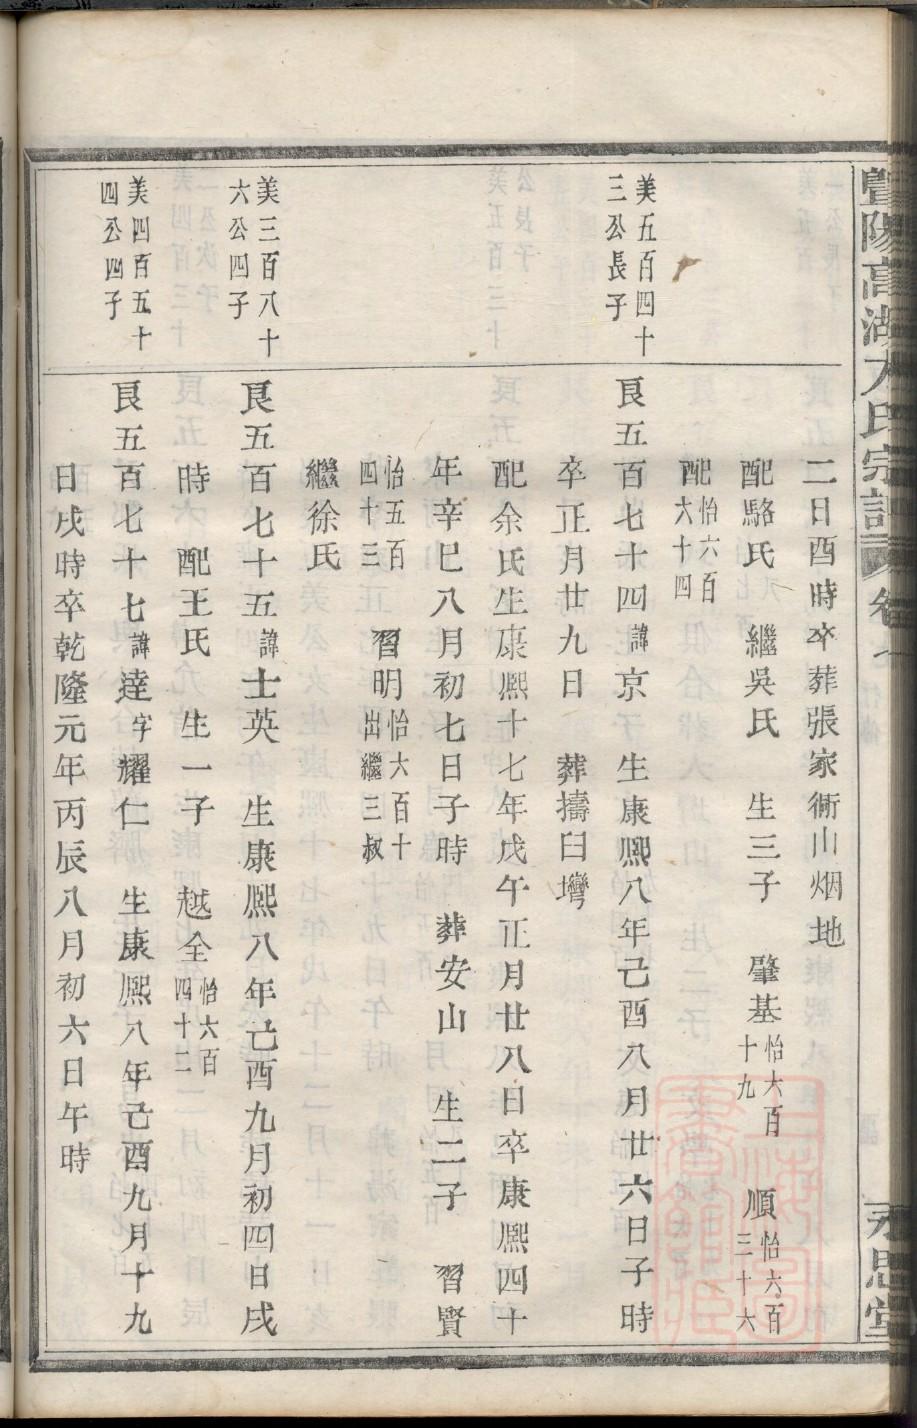 暨陽高湖方氏宗譜 卷七 永思堂
二日酉時卒葬張家衕山烟地
配駱氏 繼吳氏 生三子 肇基怡六百十九 順怡六百三十六
配怡六百六十四
美五百四十三公長子
艮五百七十四諱京 生康熙八年己酉八月廿六日子時
卒正月廿九日 葬擣臼塆
配余氏生康熙十七年戊午正月廿八日卒康熙四十
年辛巳八月初七日子時 葬安山 生二子 習賢
怡五百四十三 習明怡六百十出繼三叔
繼徐氏
美三百八十六公四子
艮五百七十五諱士英 生康熙八年己酉九月初四日戌
時 配王氏 生一子 越全怡六百四十二
美四百五十四公四子
艮五百七十七諱達字耀仁 生康熙八年己酉九月十九
日戌時卒乾隆元年丙辰八月初六日午時